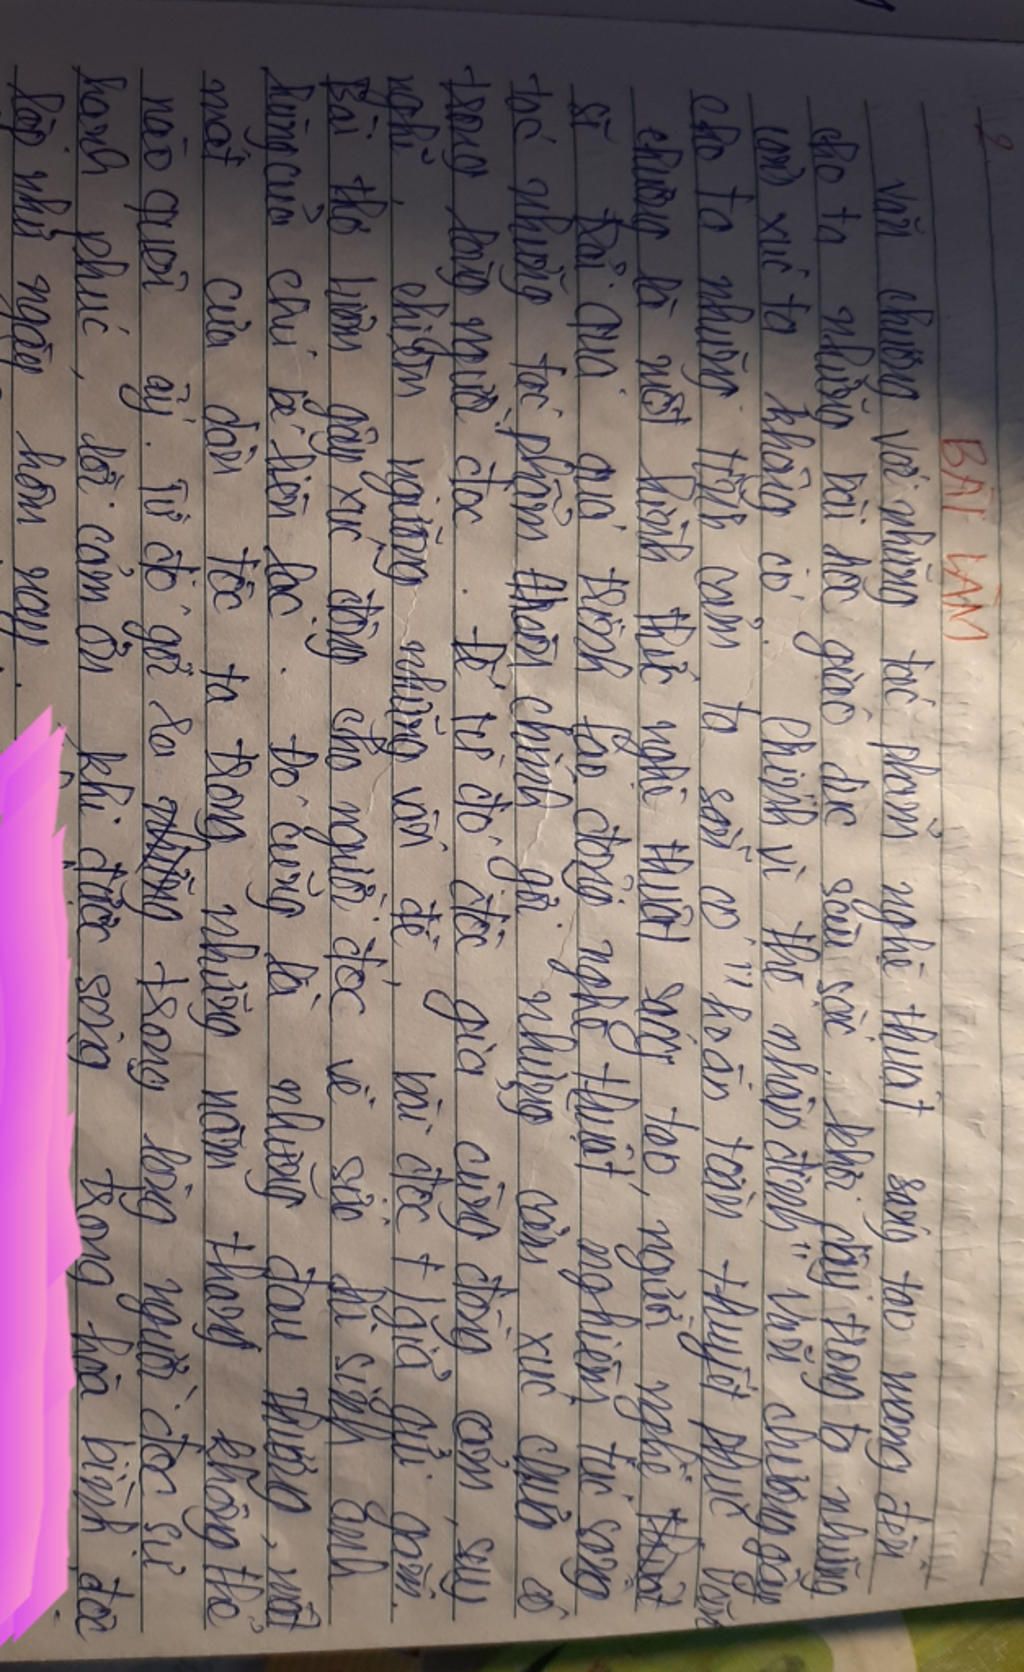 BÀI LÀM
Văn chương với những tác phẩm nghệ thuật sáng tạo mang đến
cho ta những bài học giáo dục sâu sắc, khơi dậy trong ta những
cảm xúc ta không có. Chính vì thế nhận định "văn chương gây
cho ta những tình cảm ta sẵn có" hoàn toàn thuyết phục. Văn
chương là một hình thức nghệ thuật sáng tạo, người nghệ
sĩ trải qua quá trình lao động nghệ thuật nghiêm túc sáng
tác những tác phẩm thầm chính gửi những cảm xúc chứa có
trong lòng người đọc. Để từ đó độc giả cùng đồng cảm, suy
nghĩ, chiêm ngưỡng những vấn đề, bài đọc t/giả gửi gắm.
Bài thơ luôn gây xúc động cho người đọc về sự hi sinh anh
hùng của chú bé liên lạc. Đó cũng là những đau thương, mất
mát của dân tộc ta trong những năm tháng không thể
nào quên ấy. Từ đó gợi ra trong lòng người đọc sự
hạnh phúc, lời cảm ơn khi được sống trong hòa bình, độc
lập như ngày hôm nay.